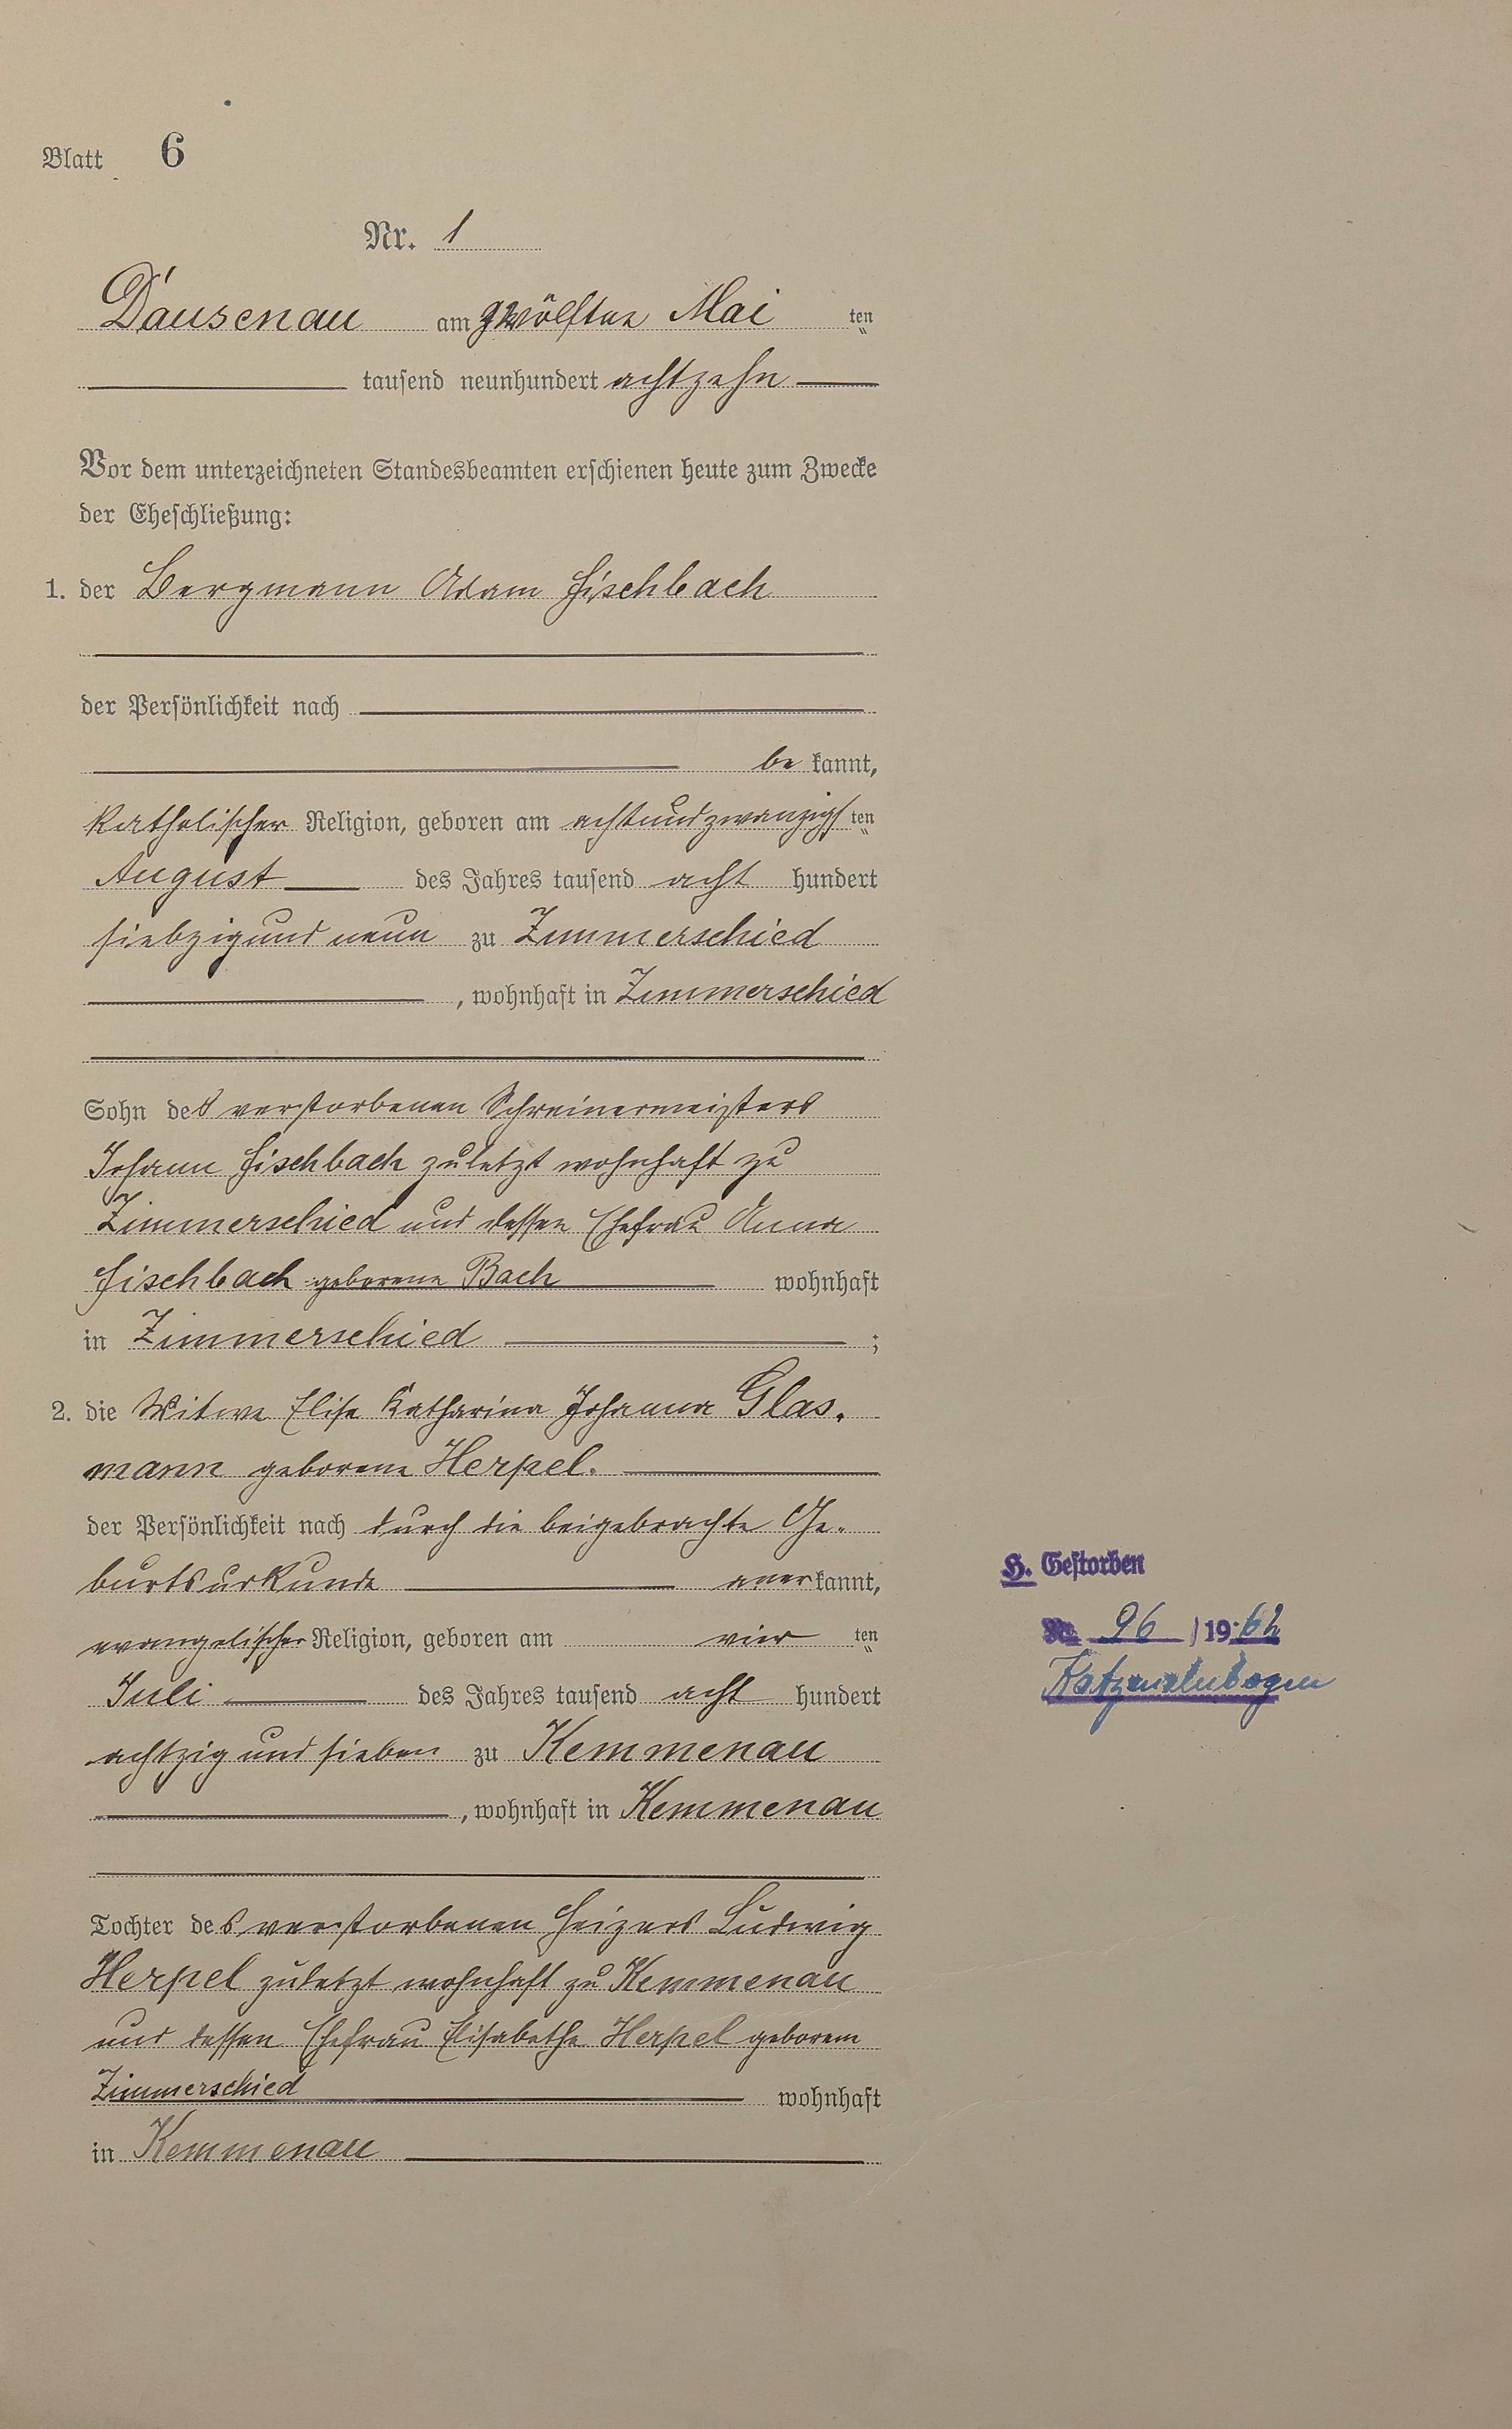 Blatt 6
Nr. 1
Dausenau am zwölften Mai ten
tausend neunhundert achtzehn
Vor dem unterzeichneten Standesbeamten erschienen heute zum Zwecke
der Eheschließung:
1. der Bergmann Adam Fischbach
der Persönlichkeit nach
be kannt,
katholischer Religion, geboren am achtundzwanzigs ten
August des Jahres tausend acht hundert
siebzigund neun zu Zimmerschied
, wohnhaft in Zimmerschied
Sohn des verstorbenen Schreinermeisters
Johann Fischbach zuletzt wohnhaft zu
Zimmerschied und dessen Ehefrau Anna
Fischbach geborene Bach wohnhaft
in Zimmerschied ;
2. die Witwe Elise Katharina Johanna Glas-
mann geborene Herpel.
der Persönlichkeit nach durch die beigebrachte Ge-
burtsurkunde aner kannt,
evangelischer Religion, geboren am vier ten
Juli des Jahres tausend acht hundert
achtzig und sieben zu Kemmenau
, wohnhaft in Kemmenau
Tochter des verstorbenen Heizers Ludwig
Herpel zuletzt wohnhaft zu Kemmenau
und dessen Ehefrau Elisabethe Herpel geborene
Zimmerschied wohnhaft
in Kemmenau
H. Gestorben
Nr. 96 / 1962
Katzenelnbogen